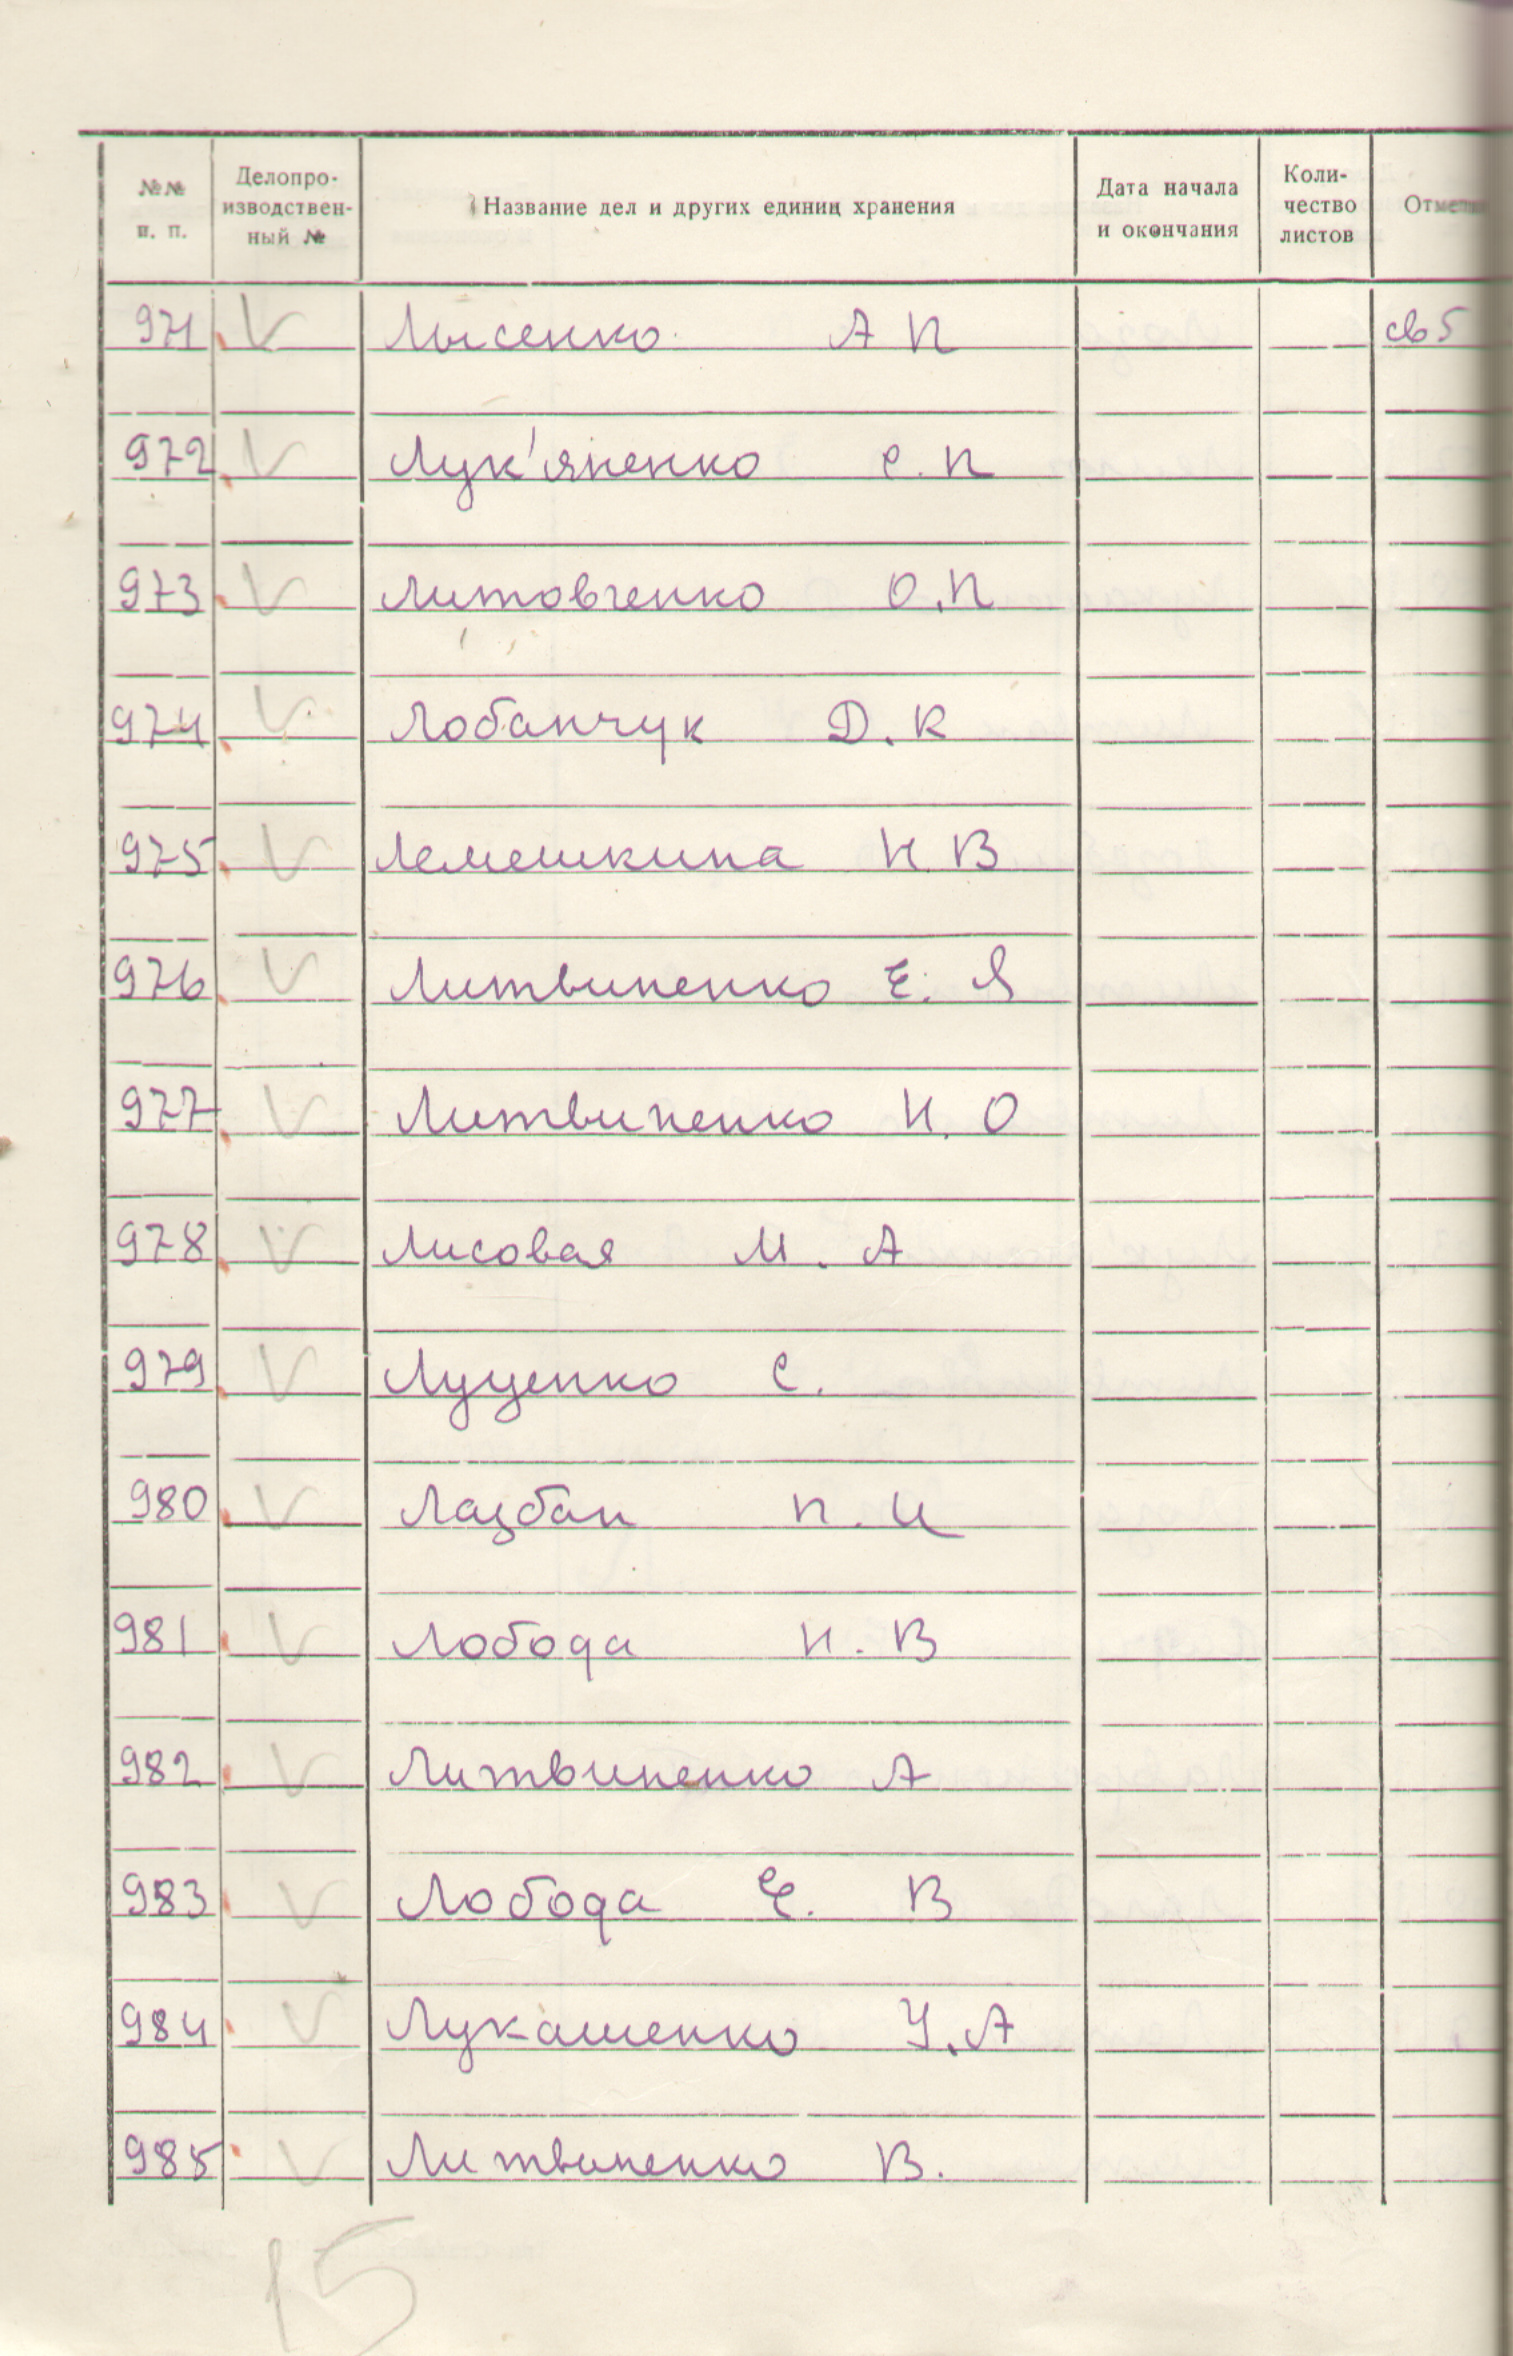 №№ п. п. Делопро-изводствен-ный № Название дел и других единиц хранения Дата начала и окончания Коли-чество листов Отметки
971 V Лысенко А П св 5
972 V Лук'яненко С. П
973 V Литовченко О. П
974 V Лобанчук Д. К
975 V Лемешкина Н. В
976 V Литвиненко Е. Я
977 V Литвиненко Н. О
978 V Лисовая М. А
979 V Луценко С.
980 V П. И
981 V Лобода Н. В
982 V Литвиненко А
983 V Лобода Е. В
984 V Лукашенко У. А
985 V Литвиненко В.
15